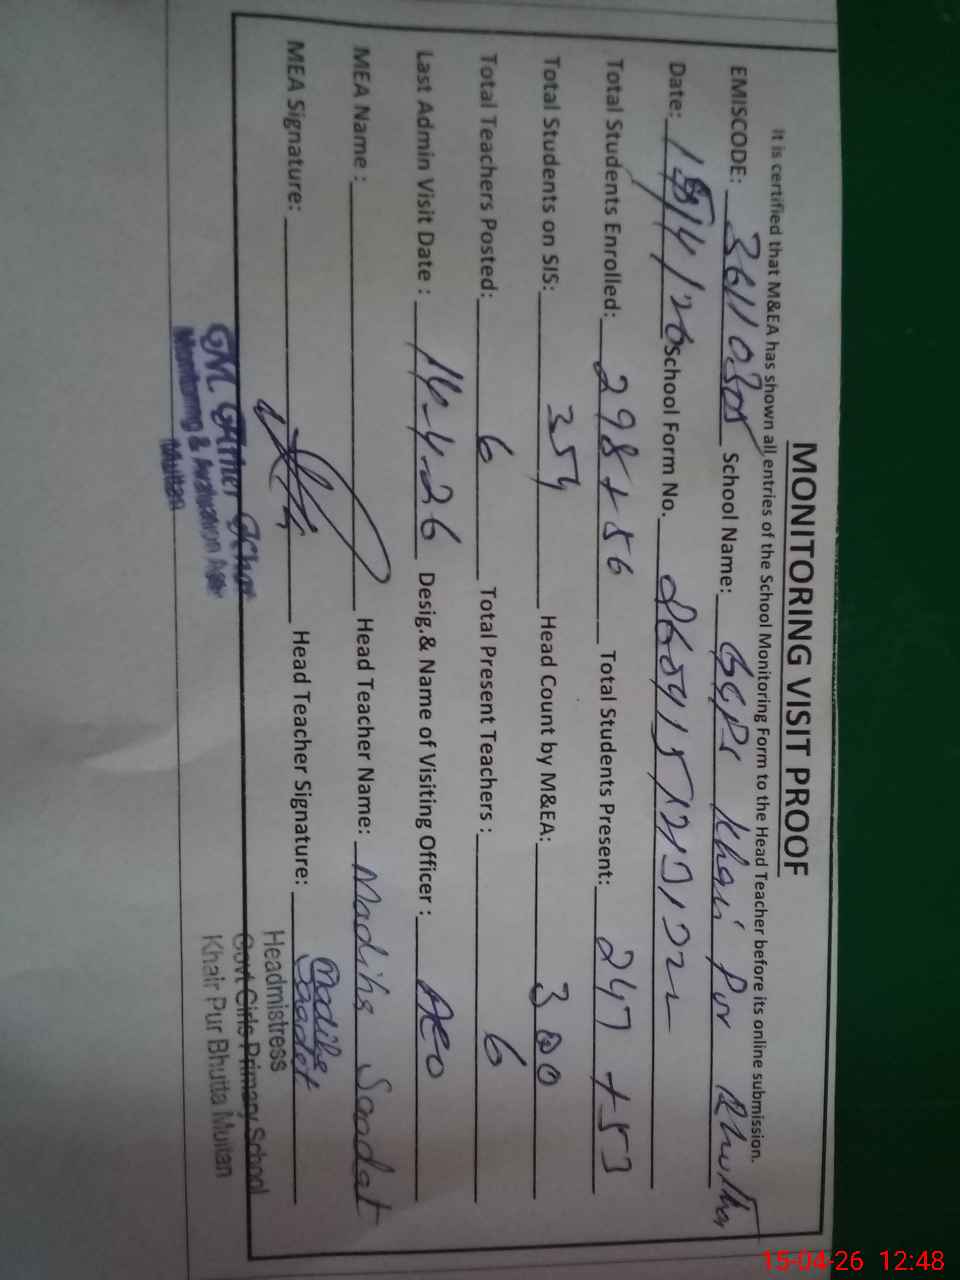 MONITORING VISIT PROOF
It is certified that M&EA has shown all entries of the School Monitoring Form to the Head Teacher before its online submission.
EMISCODE: School Name: GGPS Khair Pur Bhutta
Date: 15/4/26 School Form No.
Total Students Enrolled: 298+56 Total Students Present: 247+53
Total Students on SIS: 354 Head Count by M&EA: 300
Total Teachers Posted: 6 Total Present Teachers: 6
Last Admin Visit Date: 14-4-26 Desig.& Name of Visiting Officer: AEO
MEA Name: Head Teacher Name: Madiha Sandat
MEA Signature: Head Teacher Signature: Madiha Sandat
Monitoring & Multan
Headmistress
Govt Girls Primary School
Khair Pur Bhutta Multan
15-04-26 12:48